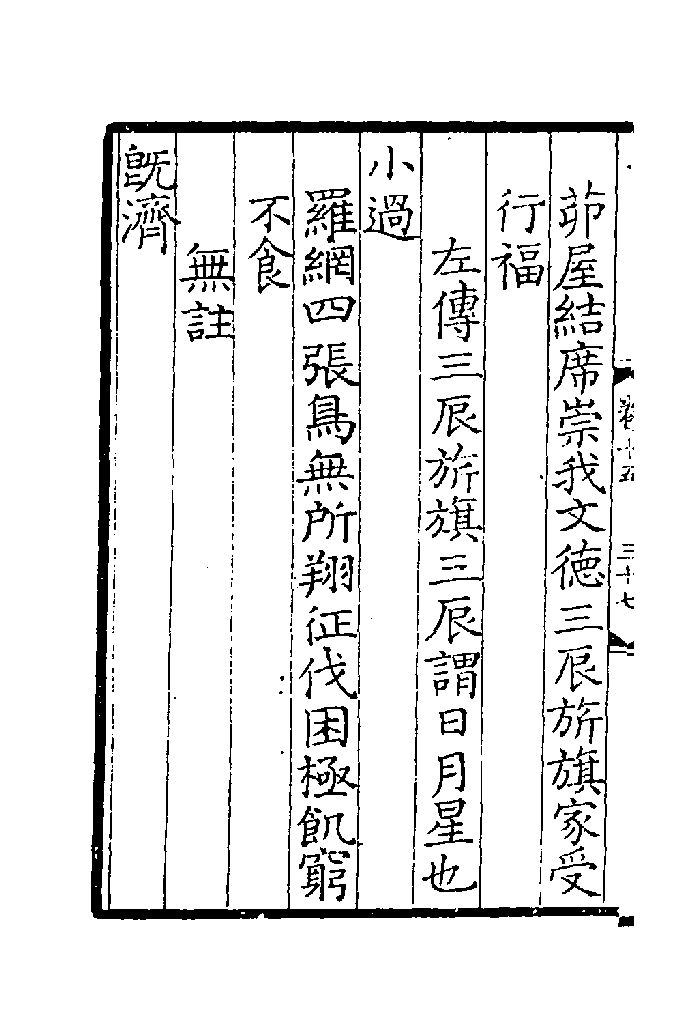 卷十五　三十七
茆屋結席崇我文徳三辰旂旗家受
行福
左傳三辰旂旗三辰謂日月星也
小過
羅網四張鳥無所翔征伐困極飢窮
不食
無註
旣濟